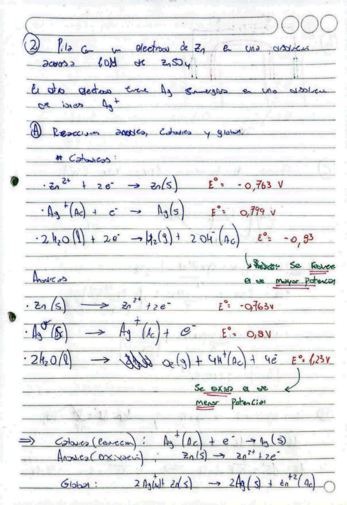 ② Pila con un electrodo de Zn en una disolución
acuosa 1,0M de ZnSO4.
El otro electrodo tiene Ag sumergido en una disolución
de iones Ag+
Ⓐ Reacciones anódica, catódica y global.
* Catódicas:
· Zn²⁺ + 2e⁻ → Zn(s) E°= -0,763 V
· Ag⁺(Ac) + e⁻ → Ag(s) E°= 0,799 V
· 2H₂O(l) + 2e⁻ → H₂(g) + 2OH⁻(Ac) E°= -0,83
↳ Se Reduce
el de mayor Potencial
Anódicas
· Zn(s) → Zn²⁺ + 2e⁻ E°= -0,763V
· Ag(s) → Ag⁺(Ac) + e⁻ E°= 0,8V
· 2H₂O(l) → O₂(g) + 4H⁺(Ac) + 4e⁻ E°= 1,23V
Se oxida el de
menor Potencial
⇒ Catódica (Reducción): Ag⁺(Ac) + e⁻ → Ag(s)
Anódica (oxidación): Zn(s) → Zn²⁺ + 2e⁻
Global: 2Ag⁺(Ac) + Zn(s) → 2Ag(s) + Zn⁺²(Ac)